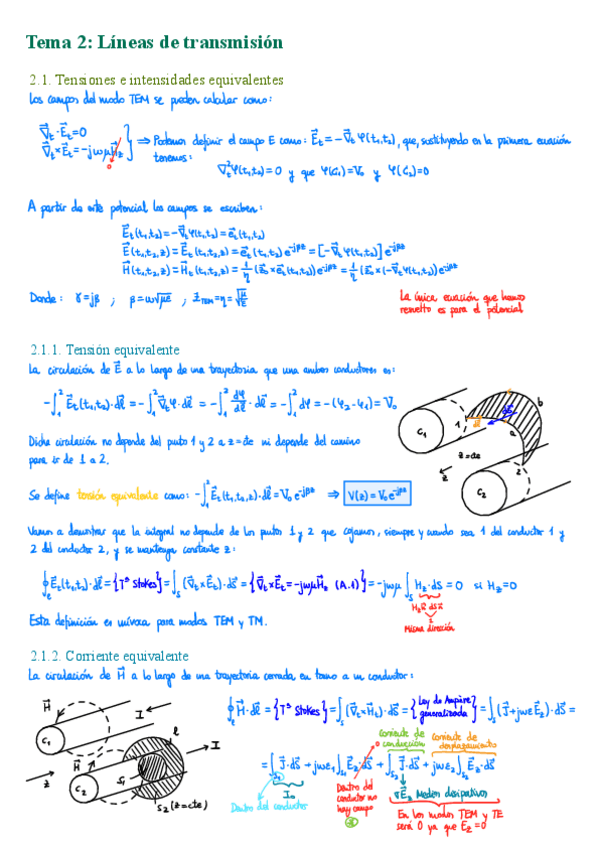 Tema 2: Líneas de transmisión
2.1. Tensiones e intensidades equivalentes
Los campos del modo TEM se pueden calcular como:
∇⃗t·E⃗t=0
∇⃗t×E⃗t=-jωμH⃗z
0
⇒ Podemos definir el campo E como: E⃗t=-∇⃗tφ(t1,t2), que, sustituyendo en la primera ecuación
tenemos:
∇t²φ(t1,t2)=0 y que φ(C1)=V0 y φ(C2)=0
A partir de este potencial los campos se escriben:
E⃗t(t1,t2)=-∇⃗tφ(t1,t2)=e⃗t(t1,t2)
E⃗(t1,t2,z)=E⃗t(t1,t2,z)=e⃗t(t1,t2)e^-jβz=[-∇⃗tφ(t1,t2)]e^-jβz
H⃗(t1,t2,z)=H⃗t(t1,t2,z)=1/η(z⃗0×e⃗t(t1,t2))e^-jβz=1/η(z⃗0×(-∇⃗tφ(t1,t2))e^-jβz
Donde: γ=jβ ; β=ω√με ; Z_TEM=η=√μ/ε
La única ecuación que hemos
resuelto es para el potencial
2.1.1. Tensión equivalente
La circulación de E⃗ a lo largo de una trayectoria que una ambos conductores es:
-∫₁² E⃗t(t1,t2)·dl⃗ = -∫₁² ∇⃗tφ·dl⃗ = -∫₁² dφ/dl⃗·dl⃗ = -∫₁² dφ = -(φ2-φ1) = V0
C1 1 dl⃗ dS⃗ a b
z=cte
z
C2 2
Dicha circulación no depende del punto 1 y 2 a z=cte ni depende del camino
para ir de 1 a 2.
Se define tensión equivalente como: -∫₁² E⃗t(t1,t2,z)·dl⃗=V0 e^-jβz ⇒ V(z)=V0 e^-jβz
Vamos a demostrar que la integral no depende de los puntos 1 y 2 que cojamos, siempre y cuando sea 1 del conductor 1 y
2 del conductor 2, y se mantenga constante z:
∮ E⃗t(t1,t2)·dl⃗={Tª Stokes}=∫s(∇⃗t×E⃗t)·dS⃗={∇⃗t×E⃗t=-jωμH⃗z (A.1)}=-jωμ∫s Hz·dS=0 si Hz=0
Misma dirección
Esta definición es unívoca para modos TEM y TM.
2.1.2. Corriente equivalente
La circulación de H⃗ a lo largo de una trayectoria cerrada en torno a un conductor:
H⃗ I l
C1
H⃗ I
z C2 S1
S2 (z=cte)
∮ H⃗·dl⃗={Tª Stokes}=∫s(∇⃗t×H⃗t)·dS⃗={Ley de Ampère generalizada}=∫s(J⃗+jωεE⃗z)·dS⃗=
corriente de conducción
corriente de desplazamiento
=∫s1 J⃗·dS⃗+jωε∫s1 E⃗z·dS⃗+∫s2 J⃗·dS⃗+jωε∫s2 E⃗z·dS⃗
I0
Dentro del conductor
Dentro del
conductor no
hay campo
Medios disipativos
En los modos TEM y TE
será 0 ya que Ez=0